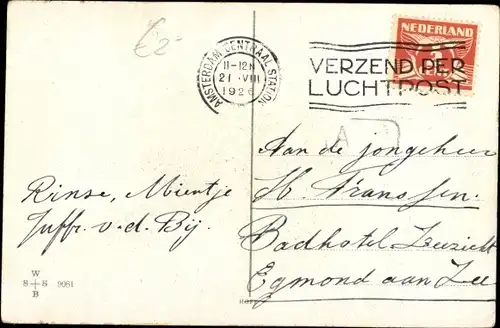 €2-
AMSTERDAM CENTRAAL STATION
11-12
21 VIII
1926
VERZEND PER
LUCHTPOST
NEDERLAND
A
Aan de jongeheer
H. Franssen.
Badhotel Zeezicht
Egmond aan Zee
Rinse, Mientje
Juffr. v. d. Bij.
W
S + S 9081
B